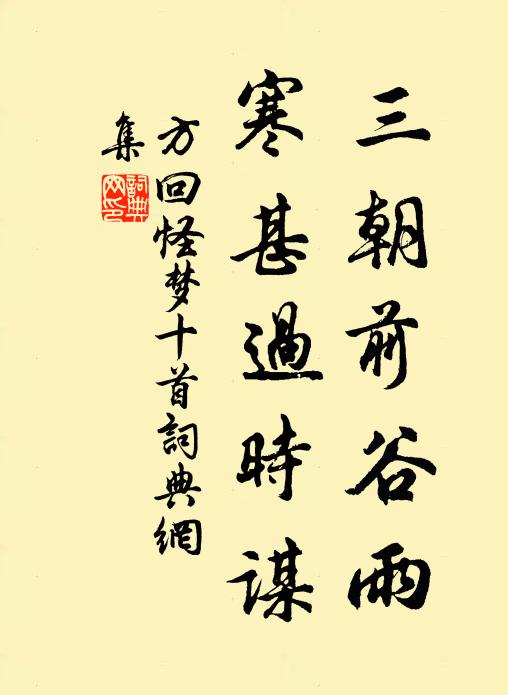 三朝前谷雨
寒甚過時謀
方回怪梦十首詞典網
集
詞典
网印